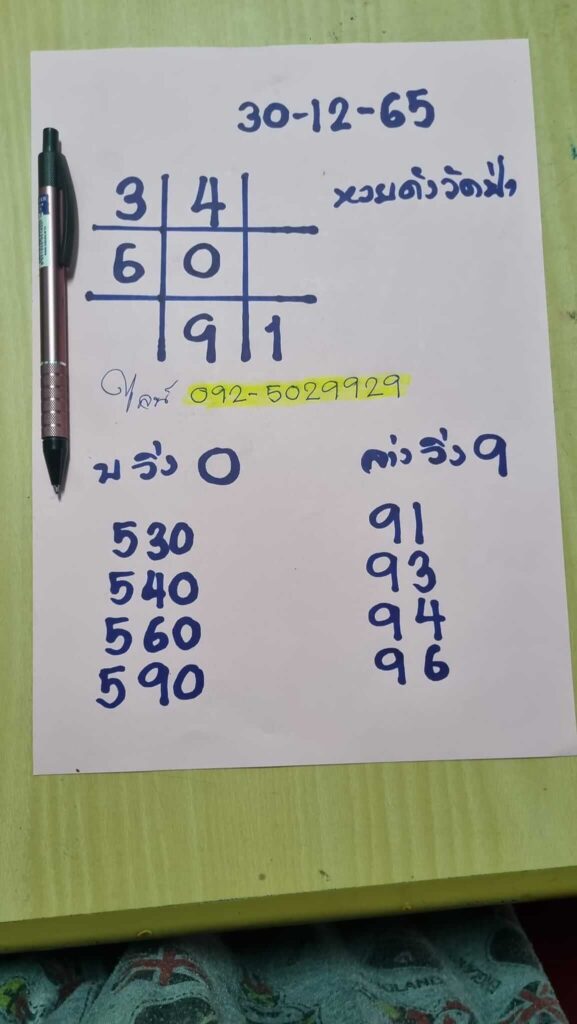 30-12-65
หวยดังวัดป่า
3 4
6 0
9 1
ไลน์ 092-5029929
บ วิ่ง 0
ล่าง วิ่ง 9
530
540
560
590
91
93
94
96